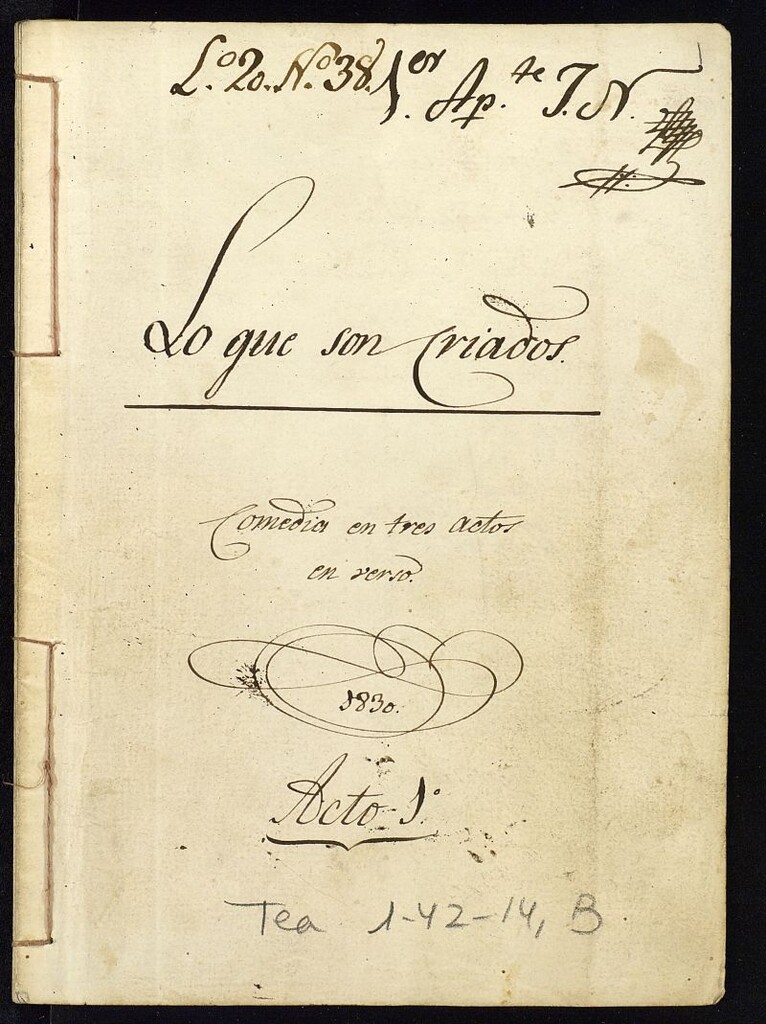 L.º 20. N.º 38. 1.er Ap.te J. N.
Lo que son Criados.
Comedia en tres actos
en verso.
1830.
Acto 1.º
Tea 1-42-14, B